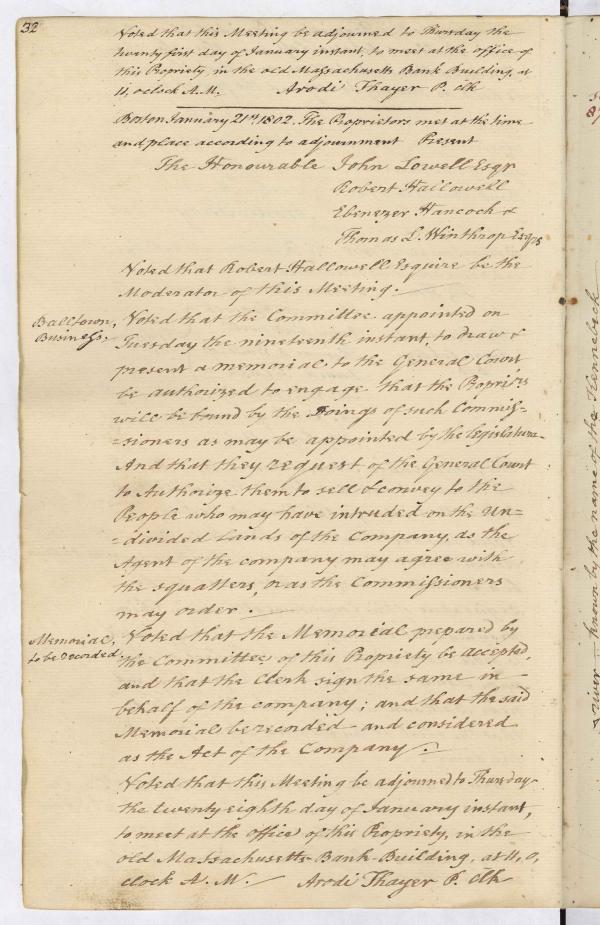 32
Voted that this Meeting be adjourned to Thursday the
twenty first day of January instant, to meet at the office of
this Propriety in the old Massachusetts Bank Building, at
11, oclock A.M. Arodi Thayer P. Clk
Boston January 21st 1802. The Proprietors met at the time
and place according to adjournment Present
The Honourable John Lowell Esqr
Robert Hallowell
Ebenezer Hancock &
Thomas L. Winthrop Esqrs
Voted that Robert Hallowell Esquire be the
Moderator of this Meeting.
Balltown,
Business,
Voted that the Committee appointed on
Tuesday the nineteenth instant, to draw &
present a memorial to the General Court
be authorized to engage that the Propri'rs
will be bound by the Doings of such Commis=
=sioners as may be appointed by the legislature
And that they request of the General Court
to Authorize them to sell & convey to the
People who may have intruded on the Un=
=divided Lands of the Company, as the
Agent of the company may agree with
the squatters, or as the Commissioners
may order.
Memorial,
to be recorded.
Voted that the Memorial prepared by
the Committee of this Propriety be accepted,
and that the Clerk sign the same in
behalf of the company; and that the said
Memorial be recorded and considered
as the Act of the Company.
Voted that this Meeting be adjourned to Thursday
the twenty eighth day of January instant,
to meet at the office of this Propriety, in the
old Massachusetts Bank-Building, at 11, O,
clock A.M. Arodi Thayer P. Clk
river known by the name of the Kennebeck